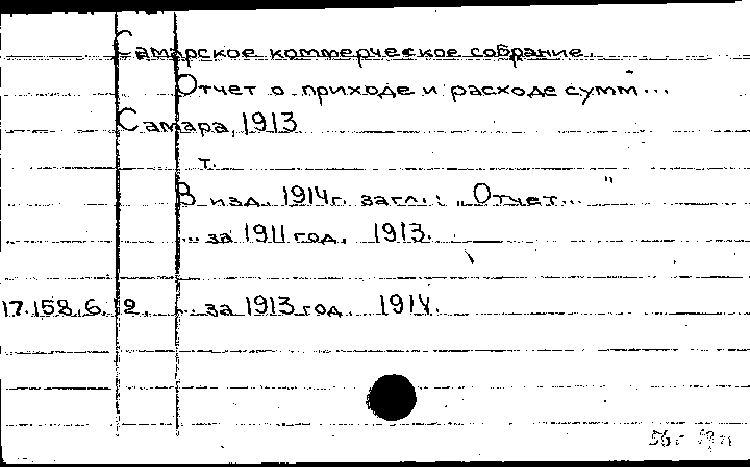 Самарское коммерческое собрание.
Отчет о приходе и расходе сумм...
Самара, 1913
т.
В изд. 1914г. загл.: „Отчет..."
... за 1911 год. 1913.
17.158.6.12. ... за 1913 год. 1914.